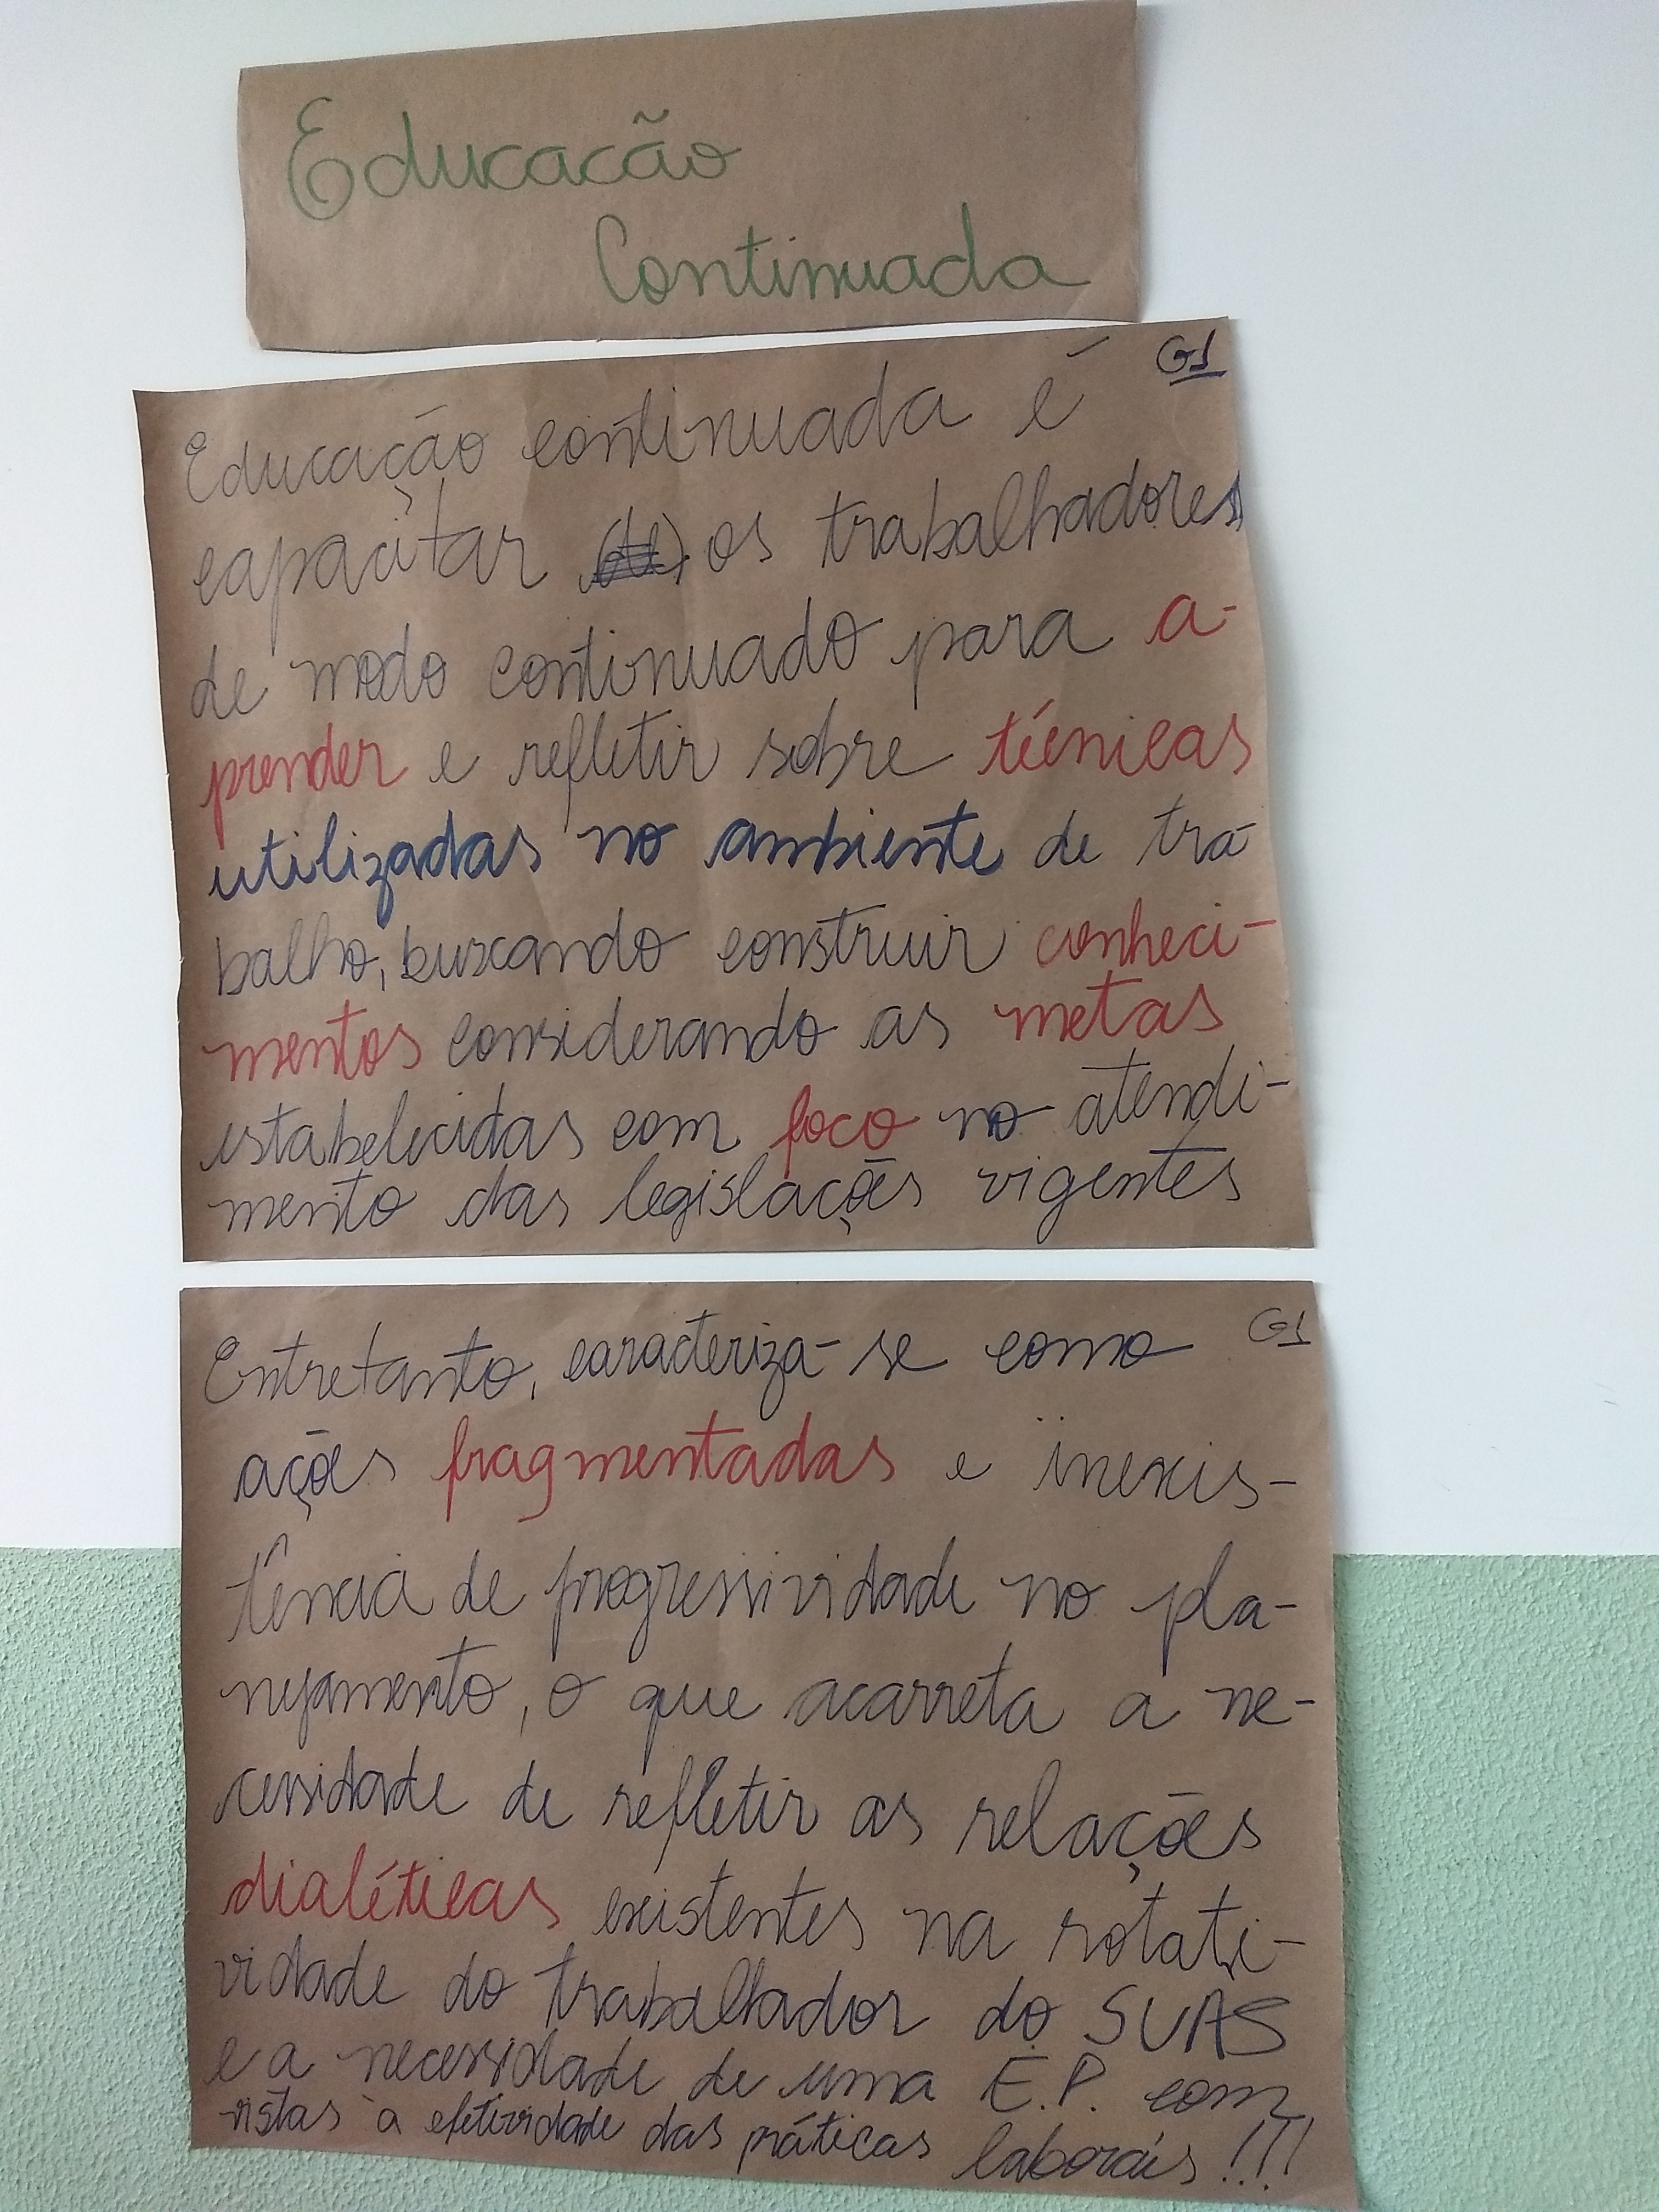 Educacão
Continuada
G1
Educação continuada é
capacitar os trabalhadores
de modo continuado para a-
prender e refletir sobre técnicas
utilizadas no ambiente de tra
balho, buscando construir conheci-
mentos considerando as metas
estabelecidas com foco no atendi-
mento das legislações vigentes
G1
Entretanto, caracteriza-se como
ações fragmentadas e inexis-
tência de progressividade no pla-
nejamento, o que acarreta a ne-
cessidade de refletir as relações
dialéticas existentes na rotati-
vidade do trabalhador do SUAS
e a necessidade de uma E.P. com
vistas à efetividade das práticas laborais!!!